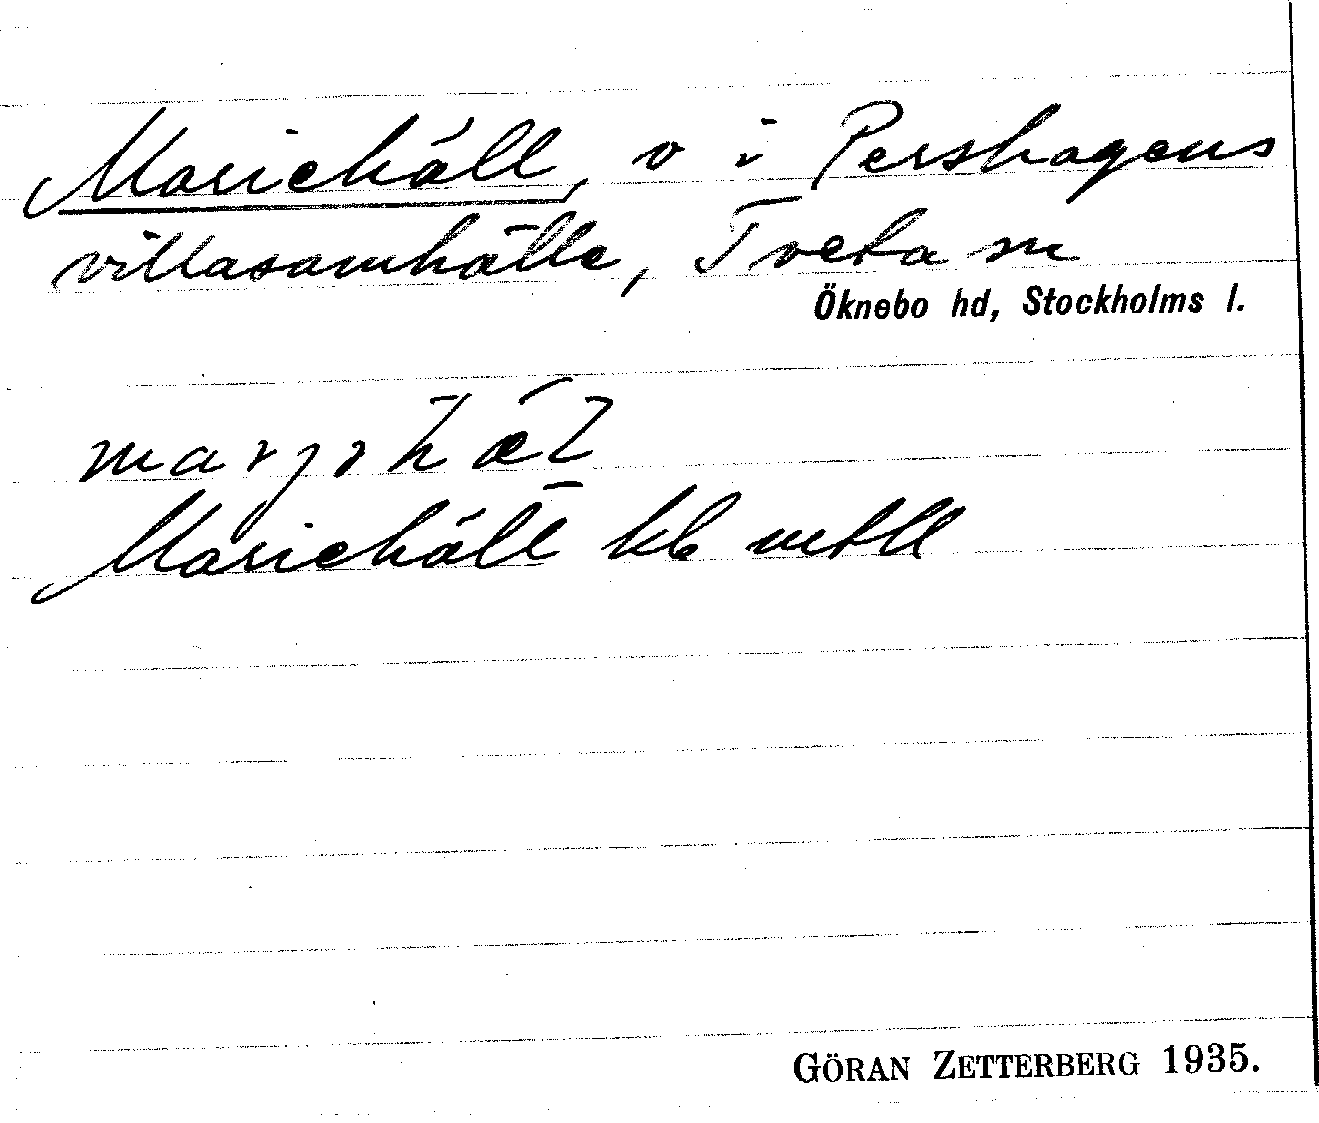 Mariehäll, v i Pershagens
villasamhälle, Tveta sn
Öknebo hd, Stockholms l.
Mariehäll kb mtll
GÖRAN ZETTERBERG 1935.